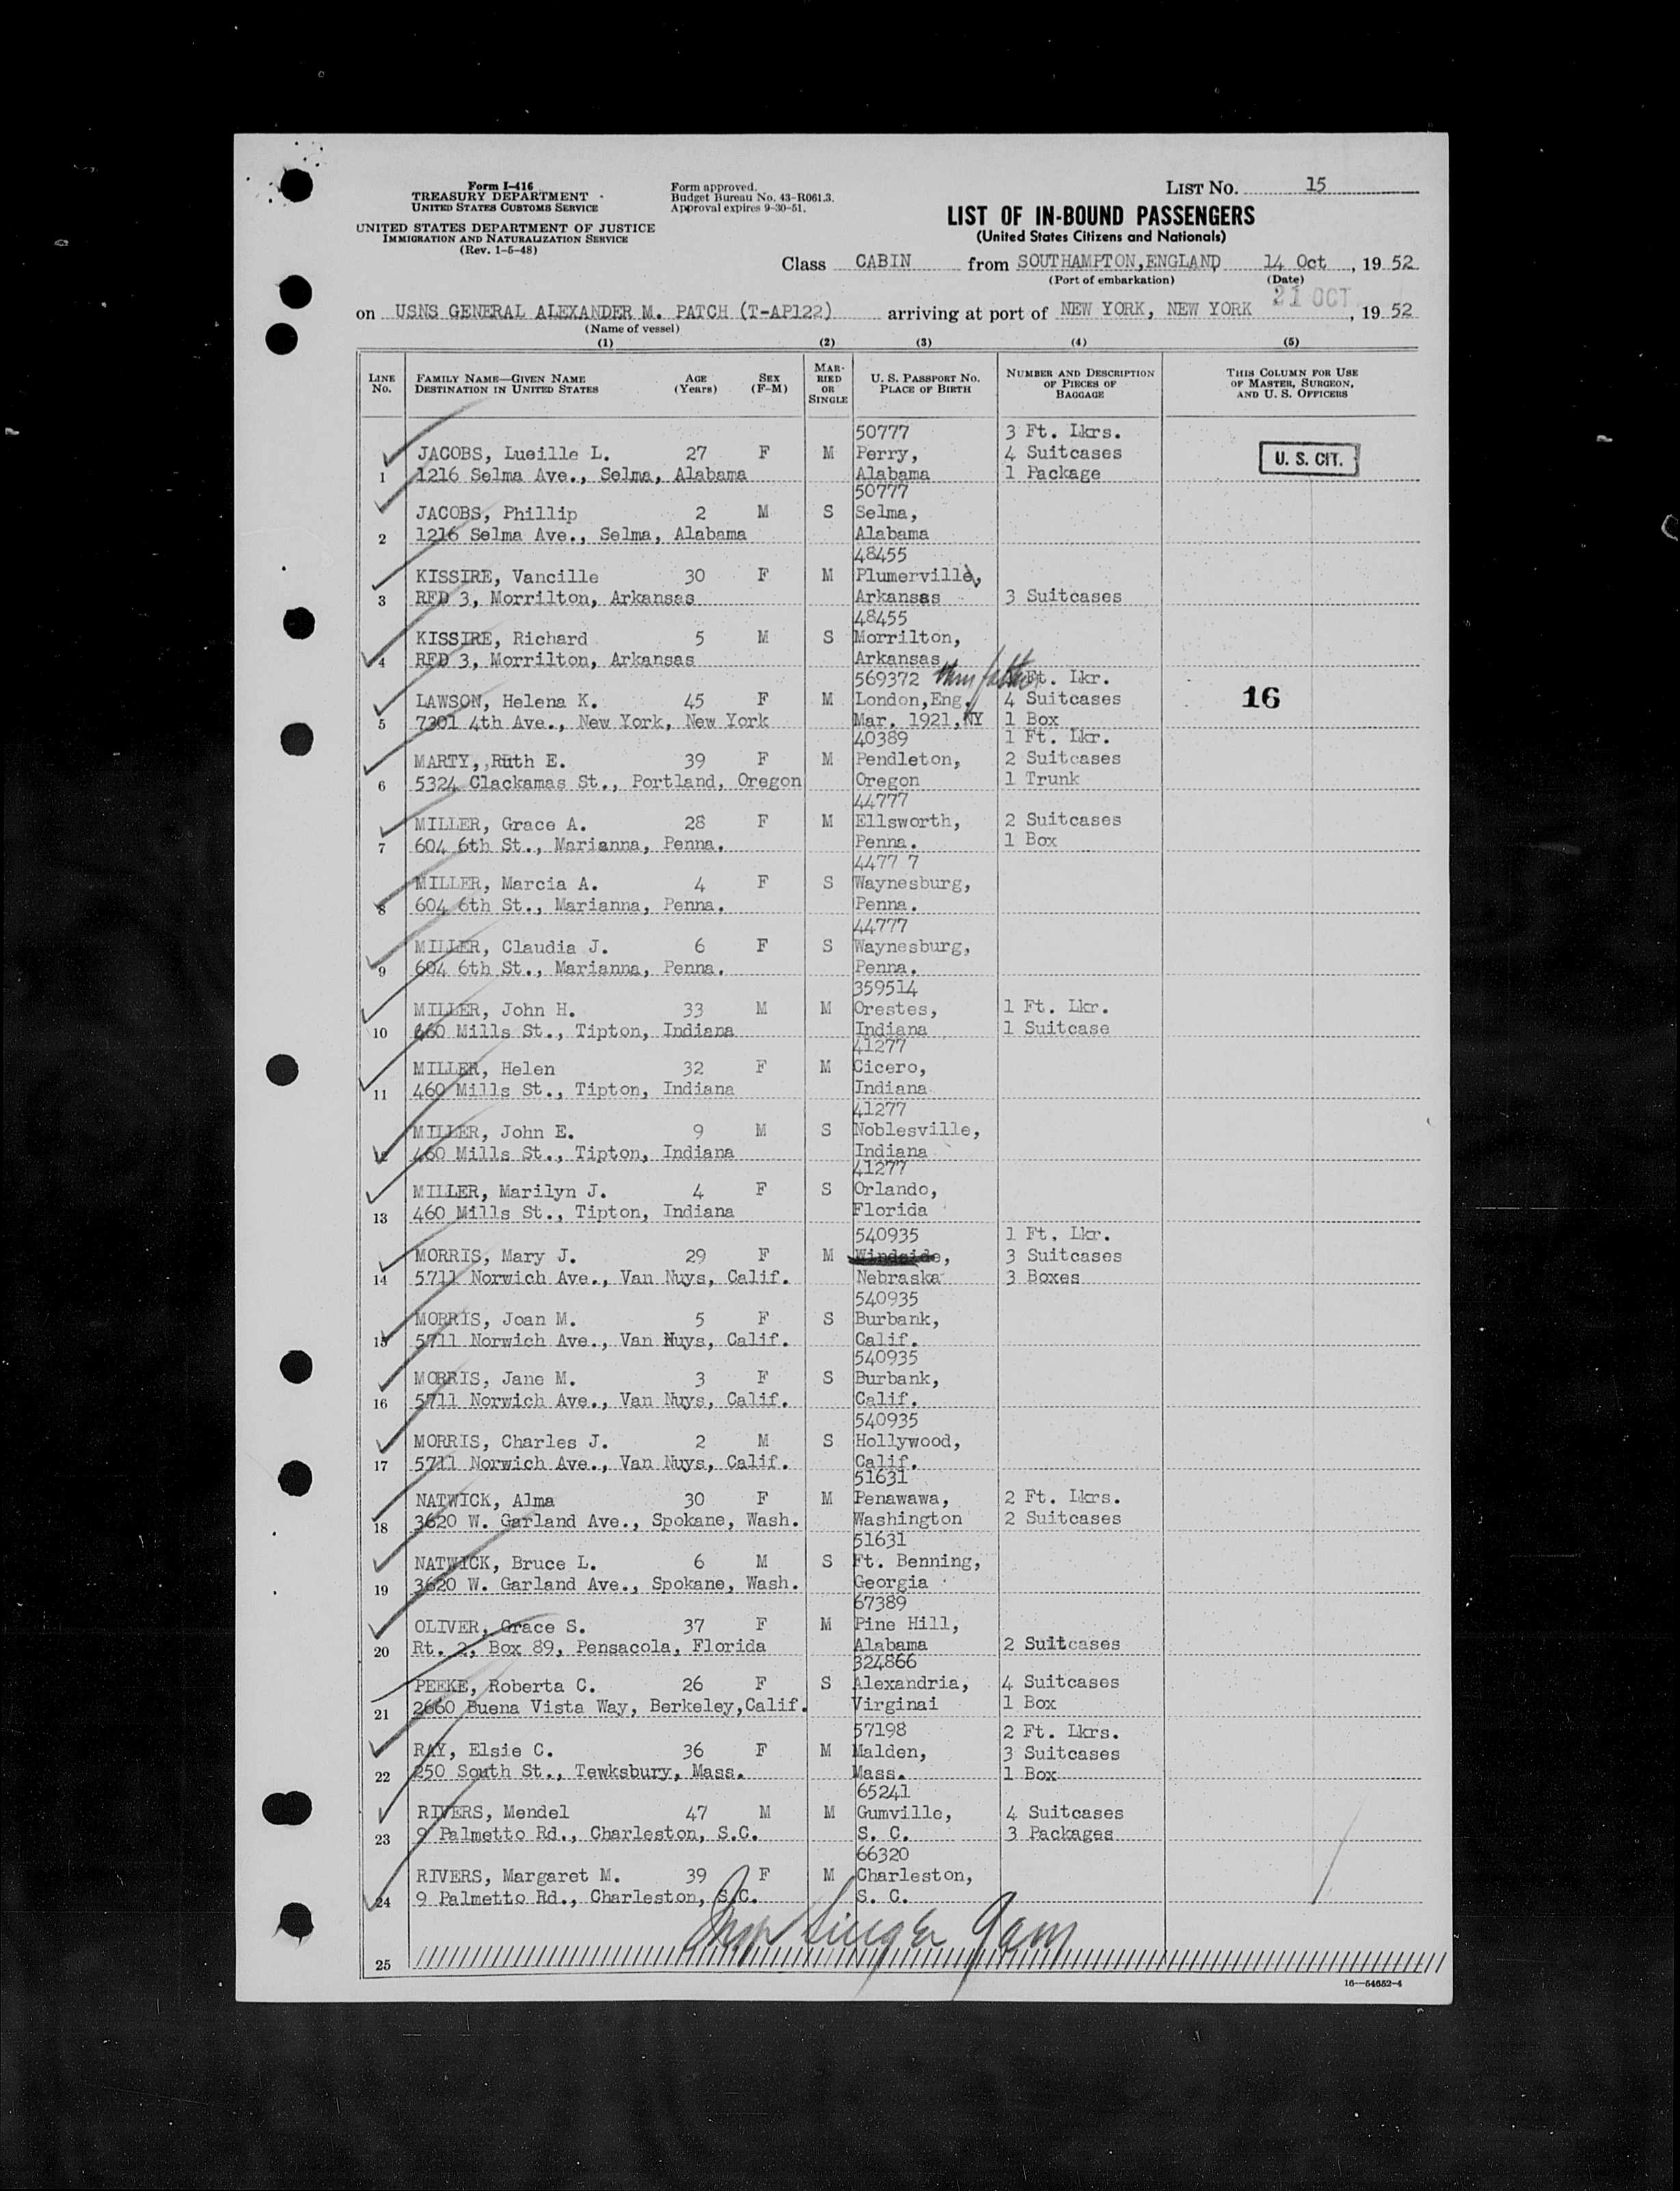 Form I-416
TREASURY DEPARTMENT
UNITED STATES CUSTOMS SERVICE
UNITED STATES DEPARTMENT OF JUSTICE
IMMIGRATION AND NATURALIZATION SERVICE
(Rev. 1-5-48)
Form approved.
Budget Bureau No. 43-R061.3.
Approval expires 9-30-51.
LIST NO. 15
LIST OF IN-BOUND PASSENGERS
(United States Citizens and Nationals)
Class CABIN from SOUTHAMPTON,ENGLAND 14 Oct, 1952
(Port of embarkation) (Date)
21 OCT
on USNS GENERAL ALEXANDER M. PATCH (T-AP122) arriving at port of NEW YORK, NEW YORK, 1952
(Name of vessel)
(1) (2) (3) (4) (5)
LINE NO. FAMILY NAME—GIVEN NAME DESTINATION IN UNITED STATES AGE (Years) SEX (F-M) MARRIED OR SINGLE U. S. PASSPORT NO. PLACE OF BIRTH NUMBER AND DESCRIPTION OF PIECES OF BAGGAGE THIS COLUMN FOR USE OF MASTER, SURGEON, AND U. S. OFFICERS
50777 3 Ft. Lkrs.
JACOBS, Lueille L. 27 F M Perry, 4 Suitcases U. S. CIT.
1 1216 Selma Ave., Selma, Alabama Alabama 1 Package
50777
JACOBS, Phillip 2 M S Selma,
2 1216 Selma Ave., Selma, Alabama Alabama
48455
KISSIRE, Vancille 30 F M Plumerville,
3 RFD 3, Morrilton, Arkansas Arkansas 3 Suitcases
48455
KISSIRE, Richard 5 M S Morrilton,
4 RFD 3, Morrilton, Arkansas Arkansas
569372 thru father Ft. Lkr.
LAWSON, Helena K. 45 F M London,Eng. 4 Suitcases 16
5 7301 4th Ave., New York, New York Mar. 1921,NY 1 Box
40389 1 Ft. Lkr.
MARTY, Ruth E. 39 F M Pendleton, 2 Suitcases
6 5324 Clackamas St., Portland, Oregon Oregon 1 Trunk
44777
MILLER, Grace A. 28 F M Ellsworth, 2 Suitcases
7 604 6th St., Marianna, Penna. Penna. 1 Box
4477 7
MILLER, Marcia A. 4 F S Waynesburg,
8 604 6th St., Marianna, Penna. Penna.
44777
MILLER, Claudia J. 6 F S Waynesburg,
9 604 6th St., Marianna, Penna. Penna.
359514
MILLER, John H. 33 M M Orestes, 1 Ft. Lkr.
10 460 Mills St., Tipton, Indiana Indiana 1 Suitcase
41277
MILLER, Helen 32 F M Cicero,
11 460 Mills St., Tipton, Indiana Indiana
41277
MILLER, John E. 9 M S Noblesville,
12 460 Mills St., Tipton, Indiana Indiana
41277
MILLER, Marilyn J. 4 F S Orlando,
13 460 Mills St., Tipton, Indiana Florida
540935 1 Ft. Lkr.
MORRIS, Mary J. 29 F M Windside, 3 Suitcases
14 5711 Norwich Ave., Van Nuys, Calif. Nebraska 3 Boxes
540935
MORRIS, Joan M. 5 F S Burbank,
15 5711 Norwich Ave., Van Nuys, Calif. Calif.
540935
MORRIS, Jane M. 3 F S Burbank,
16 5711 Norwich Ave., Van Nuys, Calif. Calif.
540935
MORRIS, Charles J. 2 M S Hollywood,
17 5711 Norwich Ave., Van Nuys, Calif. Calif.
51631
NATWICK, Alma 30 F M Penawawa, 2 Ft. Lkrs.
18 3620 W. Garland Ave., Spokane, Wash. Washington 2 Suitcases
51631
NATWICK, Bruce L. 6 M S Ft. Benning,
19 3620 W. Garland Ave., Spokane, Wash. Georgia
67389
OLIVER, Grace S. 37 F M Pine Hill,
20 Rt. 2, Box 89, Pensacola, Florida Alabama 2 Suitcases
324866
PEEKE, Roberta C. 26 F S Alexandria, 4 Suitcases
21 2660 Buena Vista Way, Berkeley,Calif. Virginai 1 Box
57198 2 Ft. Lkrs.
RAY, Elsie C. 36 F M Malden, 3 Suitcases
22 250 South St., Tewksbury, Mass. Mass. 1 Box
65241
RIVERS, Mendel 47 M M Gumville, 4 Suitcases
23 9 Palmetto Rd., Charleston, S.C. S. C. 3 Packages
66320
RIVERS, Margaret M. 39 F M Charleston,
24 9 Palmetto Rd., Charleston, S.C. S. C.
25
16—54652-4